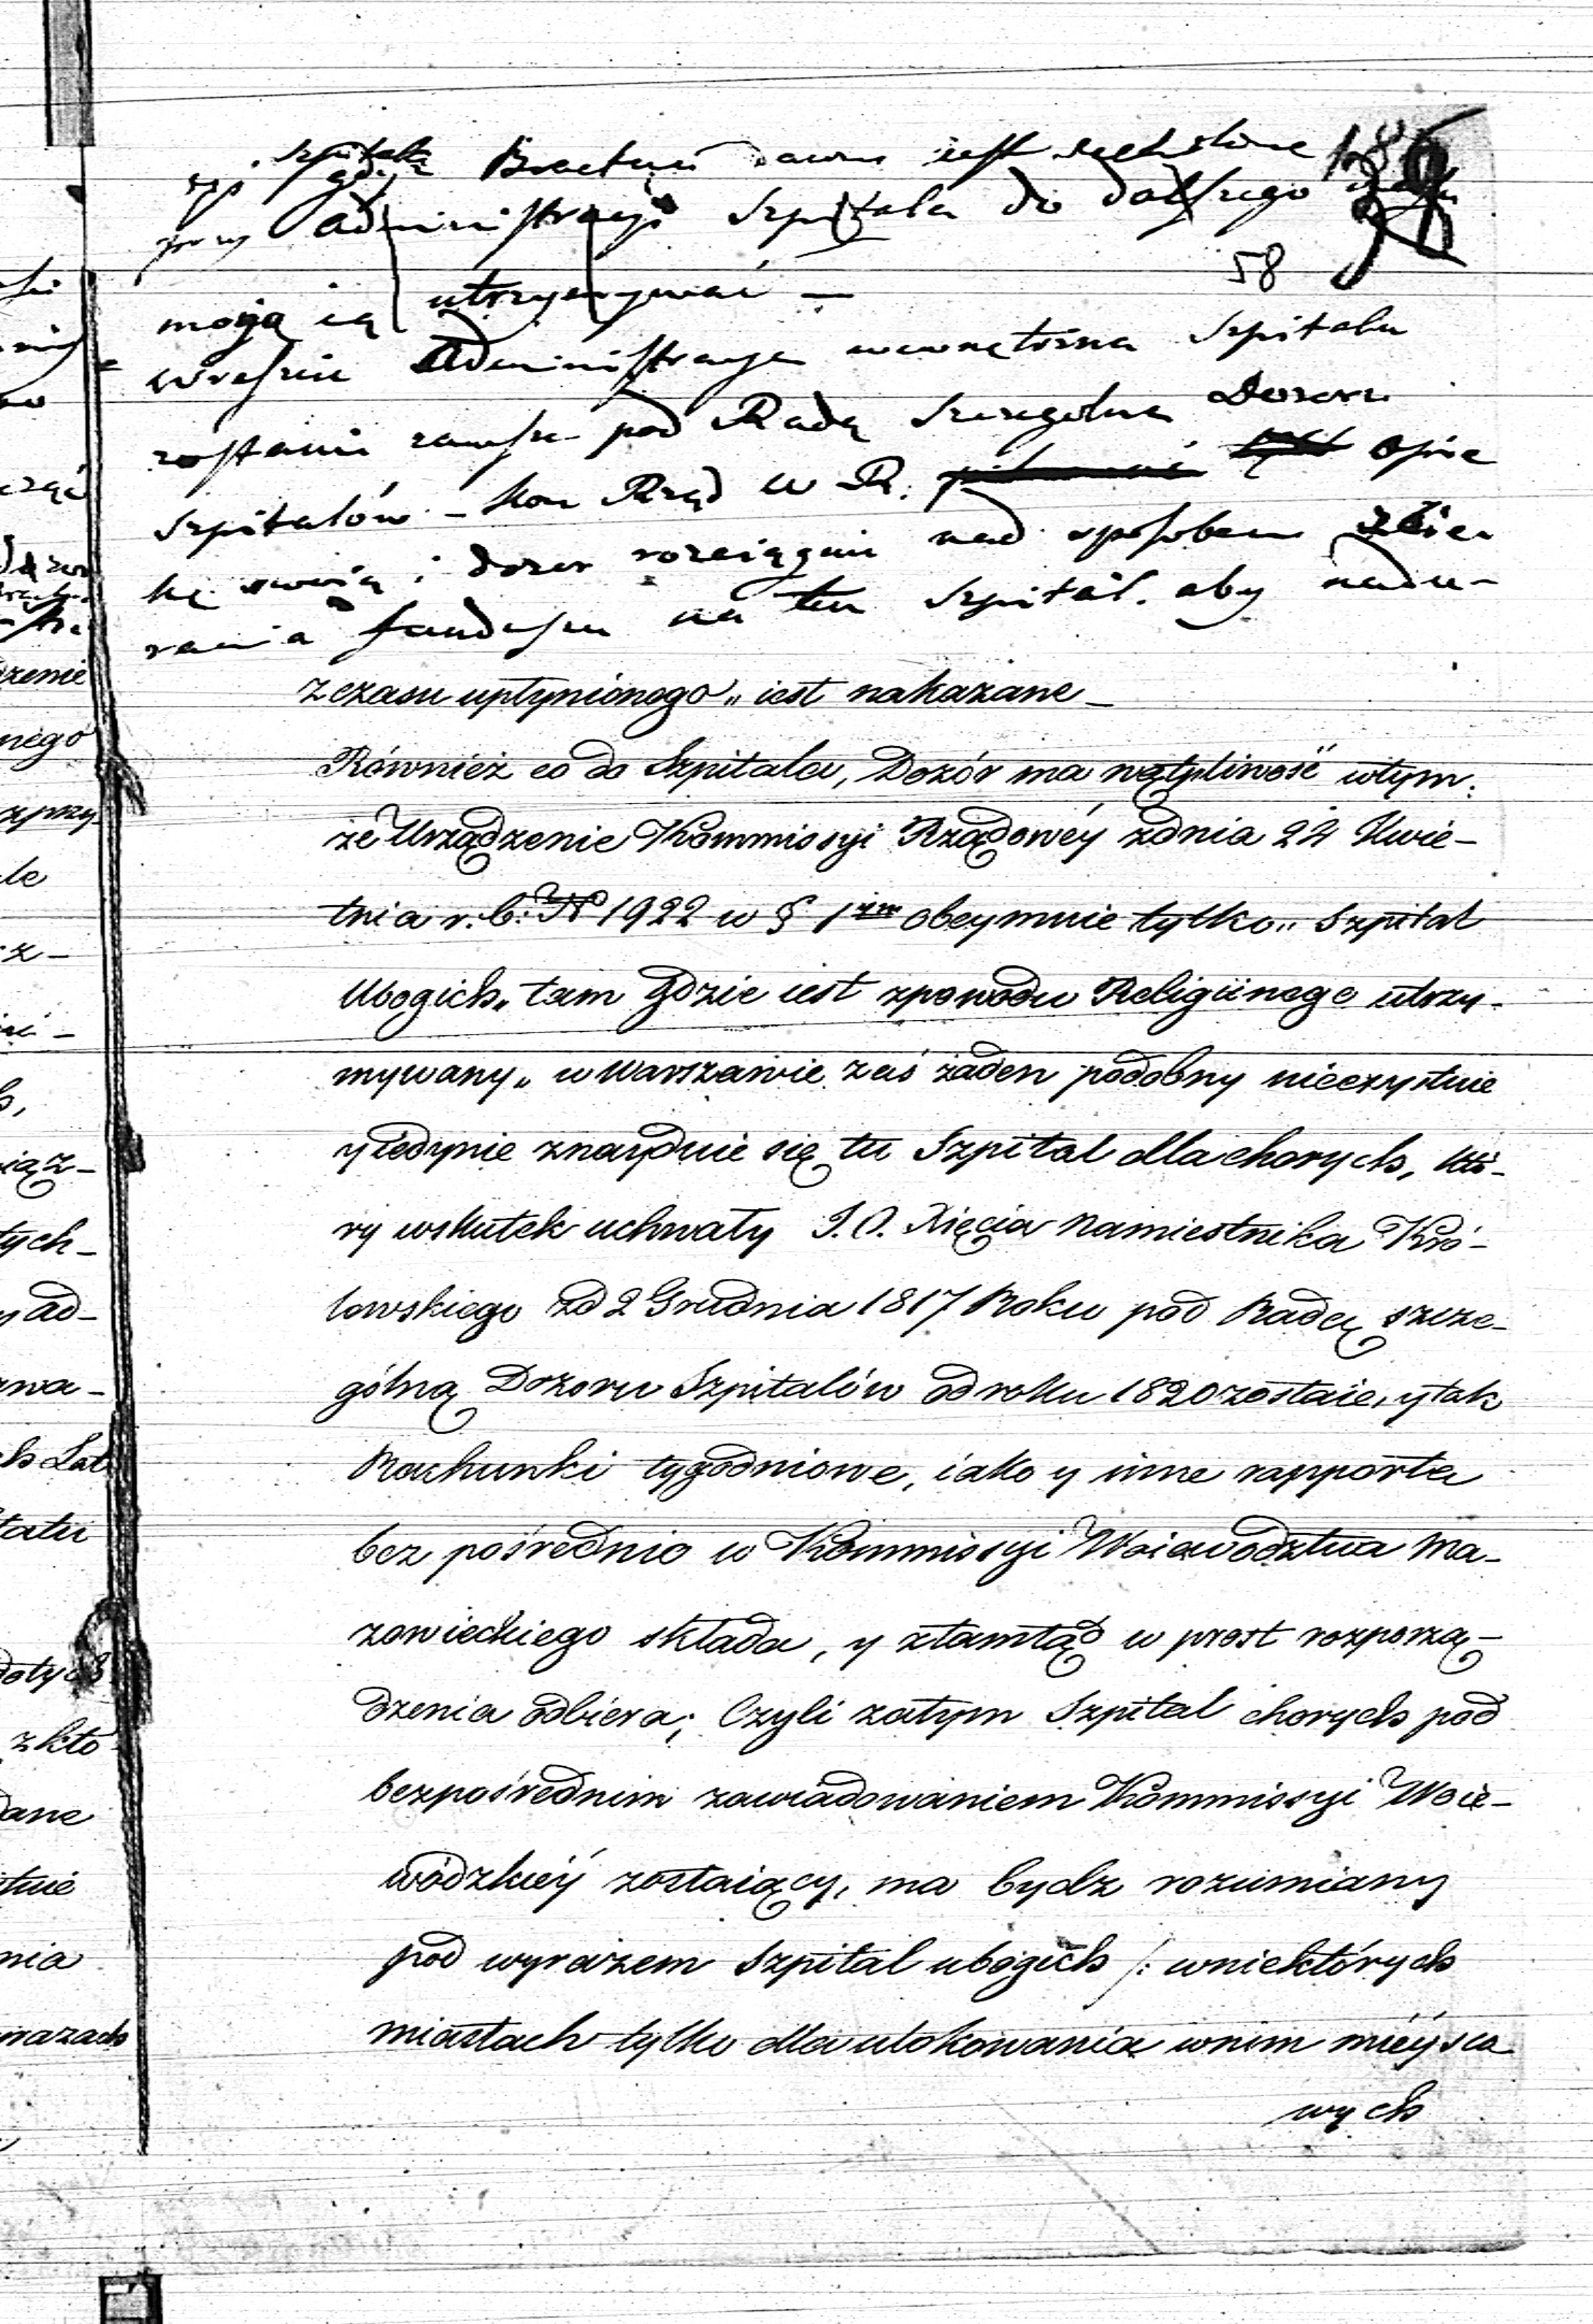 szpitala
gdzie Bractwo dawne iest
przy administracyi Szpitala do dalszego
58
mogą ią utrzymywać —
wreszcie Administracya wewnętrzna Szpitalu
zostanie zawsze pod Radą Szczegolną Dozoru
Szpitalów – Kom Rząd W R. opie
kę swoią i dozor rozciągnie nad sposobem zbie
rania funduszu na ten Szpital. aby nadu-
z czasu upłynionego„ iest nakazane –
Również co do Szpitala, Dozór ma wątpliwość w tym.
że Urządzenie Kommissyi Rządowéy z dnia 24 Kwie–
tnia r. b. No 1922 w § 1szm obeymuie tylko„ Szpital
Ubogich„ tam gdzie iest z powodu Religiinego utrzy-
mywany„ w Warszawie zaś żaden podobny nieexystuie
y iedynie znayduie się tu Szpital dla chorych, któ-
ry wskutek uchwały J. O. Xięcia Namiestnika Kró-
lewskiego z d 2 Grudnia 1817 Roku pod Radą szcze-
gólną Dozoru Szpitalów od roku 1820 zostaie, y tak
Rachunki tygodniowe, iako y inne rapporta
bez pośrednio w Kommissyi Woiewodztwa Ma-
zowieckiego składa, y ztamtąd w prost rozporzą-
dzenia odbiera; Czyli zatym Szpital chorych pod
bezpośrednim zawiadowaniem Kommissyi Woie-
wódzkiéy zostaiący, ma bydz rozumiany
pod wyrazem Szpital ubogich /: w niektórych
miastach tylko dla ulokowania w nim mieysco
wych